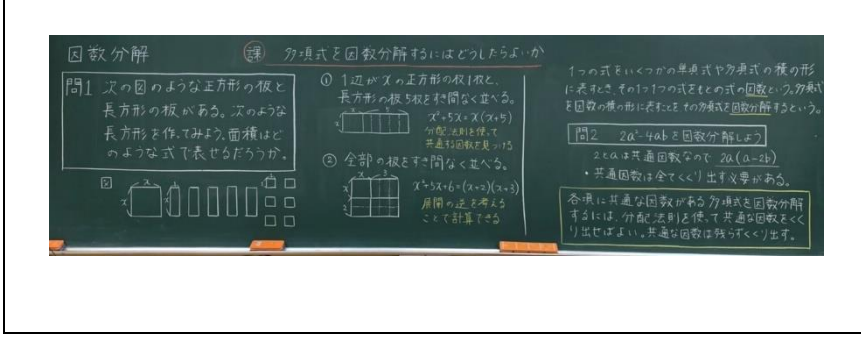 因数分解
課 多項式を因数分解するにはどうしたらよいか
問1 次の図のような正方形の板と
長方形の板がある。次のような
長方形を作ってみよう。面積はど
のような式で表せるだろうか。
図
x
x
x
1
1
1
① 1辺がxの正方形の板1枚と、
長方形の板5枚をすき間なく並べる。
x
5
x
x²+5x=x(x+5)
分配法則を使って
共通する因数を見つける
② 全部の板をすき間なく並べる。
x
3
x
2
x²+5x+6=(x+2)(x+3)
展開の逆を考える
ことで計算できる
1つの式をいくつかの単項式や多項式の積の形
に表すとき、その1つ1つの式をもとの式の因数という。多項式
を因数の積の形に表すことをその多項式を因数分解するという。
問2 2a²-4abを因数分解しよう
2とaは共通因数なので 2a(a-2b)
・共通因数は全てくくり出す必要がある。
各項に共通な因数がある多項式を因数分解
するには、分配法則を使って共通な因数をくく
り出せばよい。共通な因数は残らずくくり出す。